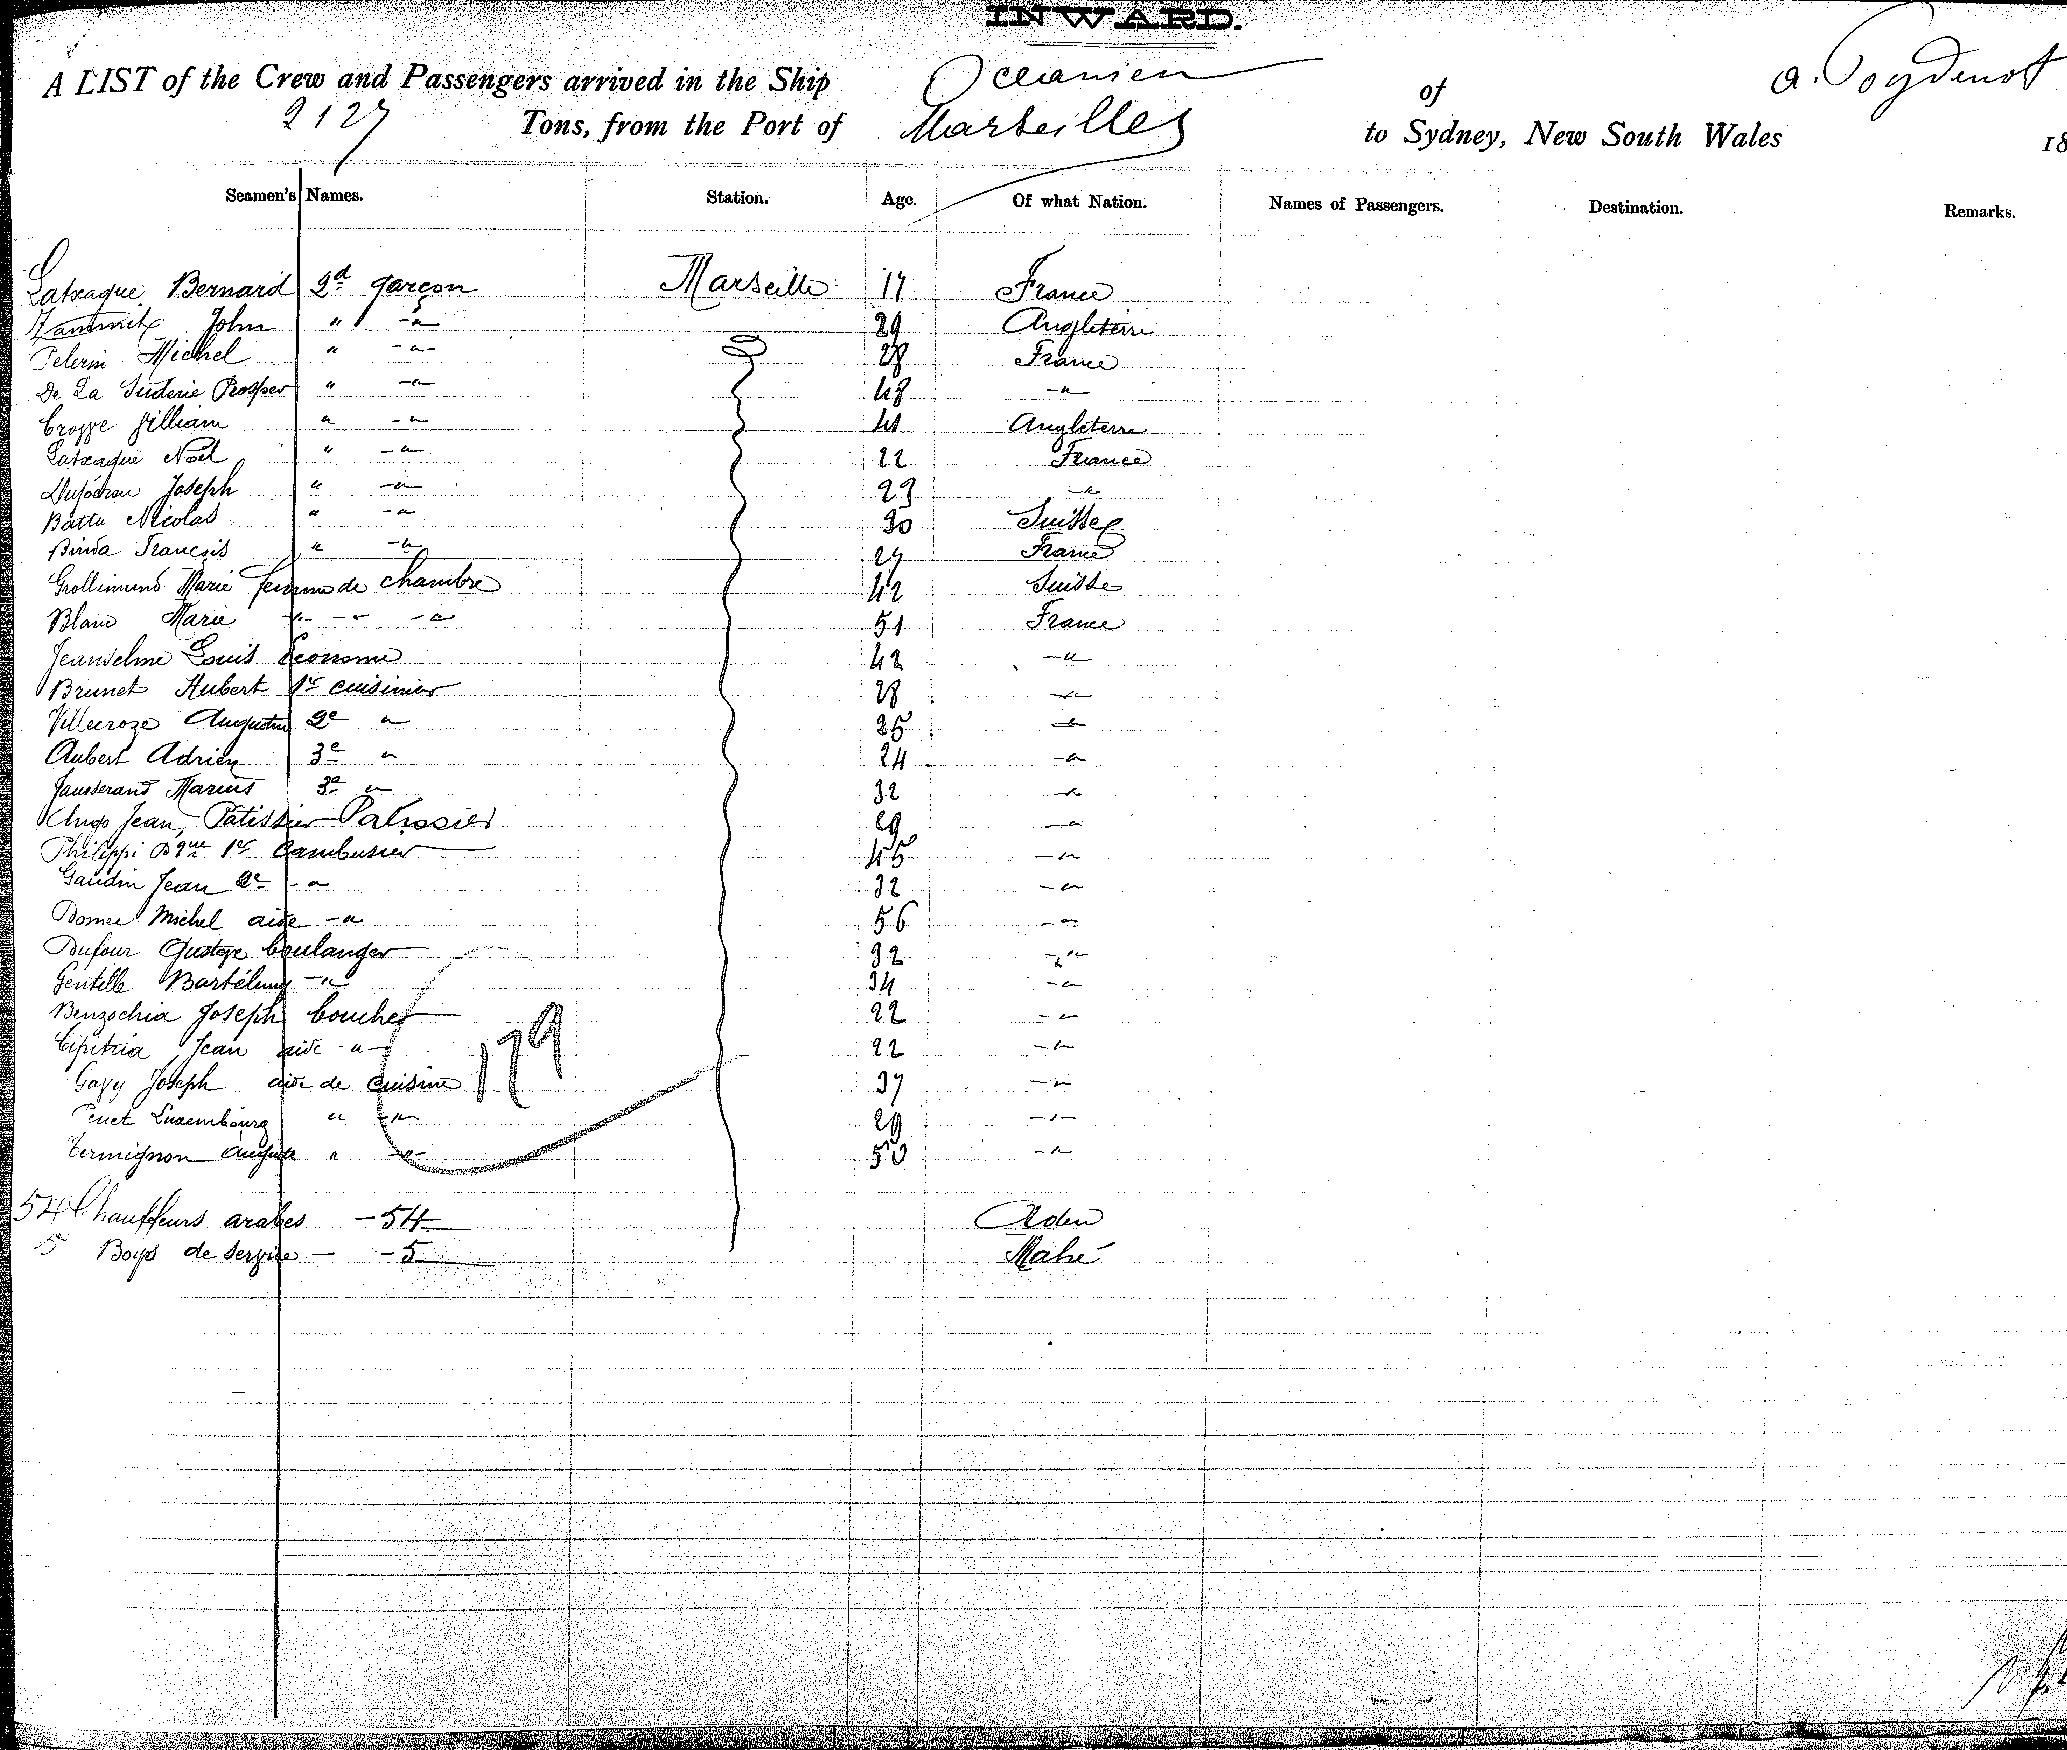 INWARD.
A LIST of the Crew and Passengers arrived in the Ship Oceanien of
2127 Tons, from the Port of Marseilles to Sydney, New South Wales 18
Seamen's Names. Station. Age. Of what Nation. Names of Passengers. Destination. Remarks.
Latxague Bernard 2d garçon Marseille 17 France
Zammit John " -"- 29 Angleterre
Pelerin Michel " -"- 28 France
De La Prosper " -"- 48 -"-
William " -"- 41 Angleterre
Latxague Noël " -"- 22 France
Joseph " -"- 23 -"-
Batta Nicolas " -"- 30 Suisse
Binda François " -"- 27 France
Grollimund Marie femme de chambre 42 Suisse
Blanc Marie -"- -"- -"- 51 France
Jeanselme Louis Econome 42 -"-
Brunet Hubert 1er cuisinier 28 -"-
Villecroze Augustin 2e " 25 -"-
Aubert Adrien 3e " 24 -"-
Jausserand Marius 3e " 32 -"-
Jean, Patissier Patissier 29 -"-
Philippi Dque 1er Cambusier 45 -"-
Gaudin Jean 2e -"- 32 -"-
Michel aide -"- 56 -"-
Dufour Gustave boulanger 32 -"-
Gentille Bartélemy -"- 34 -"-
Benzochia Joseph boucher 22 -"-
Jean aide -"- 22 -"-
Joseph aide de cuisine 37 -"-
Luxembourg " -"- 29 -"-
Termignon Auguste " -"- 50 -"-
179
54 Chauffeurs arabes - 54 Aden
5 Boys de service - - 5 Mahé